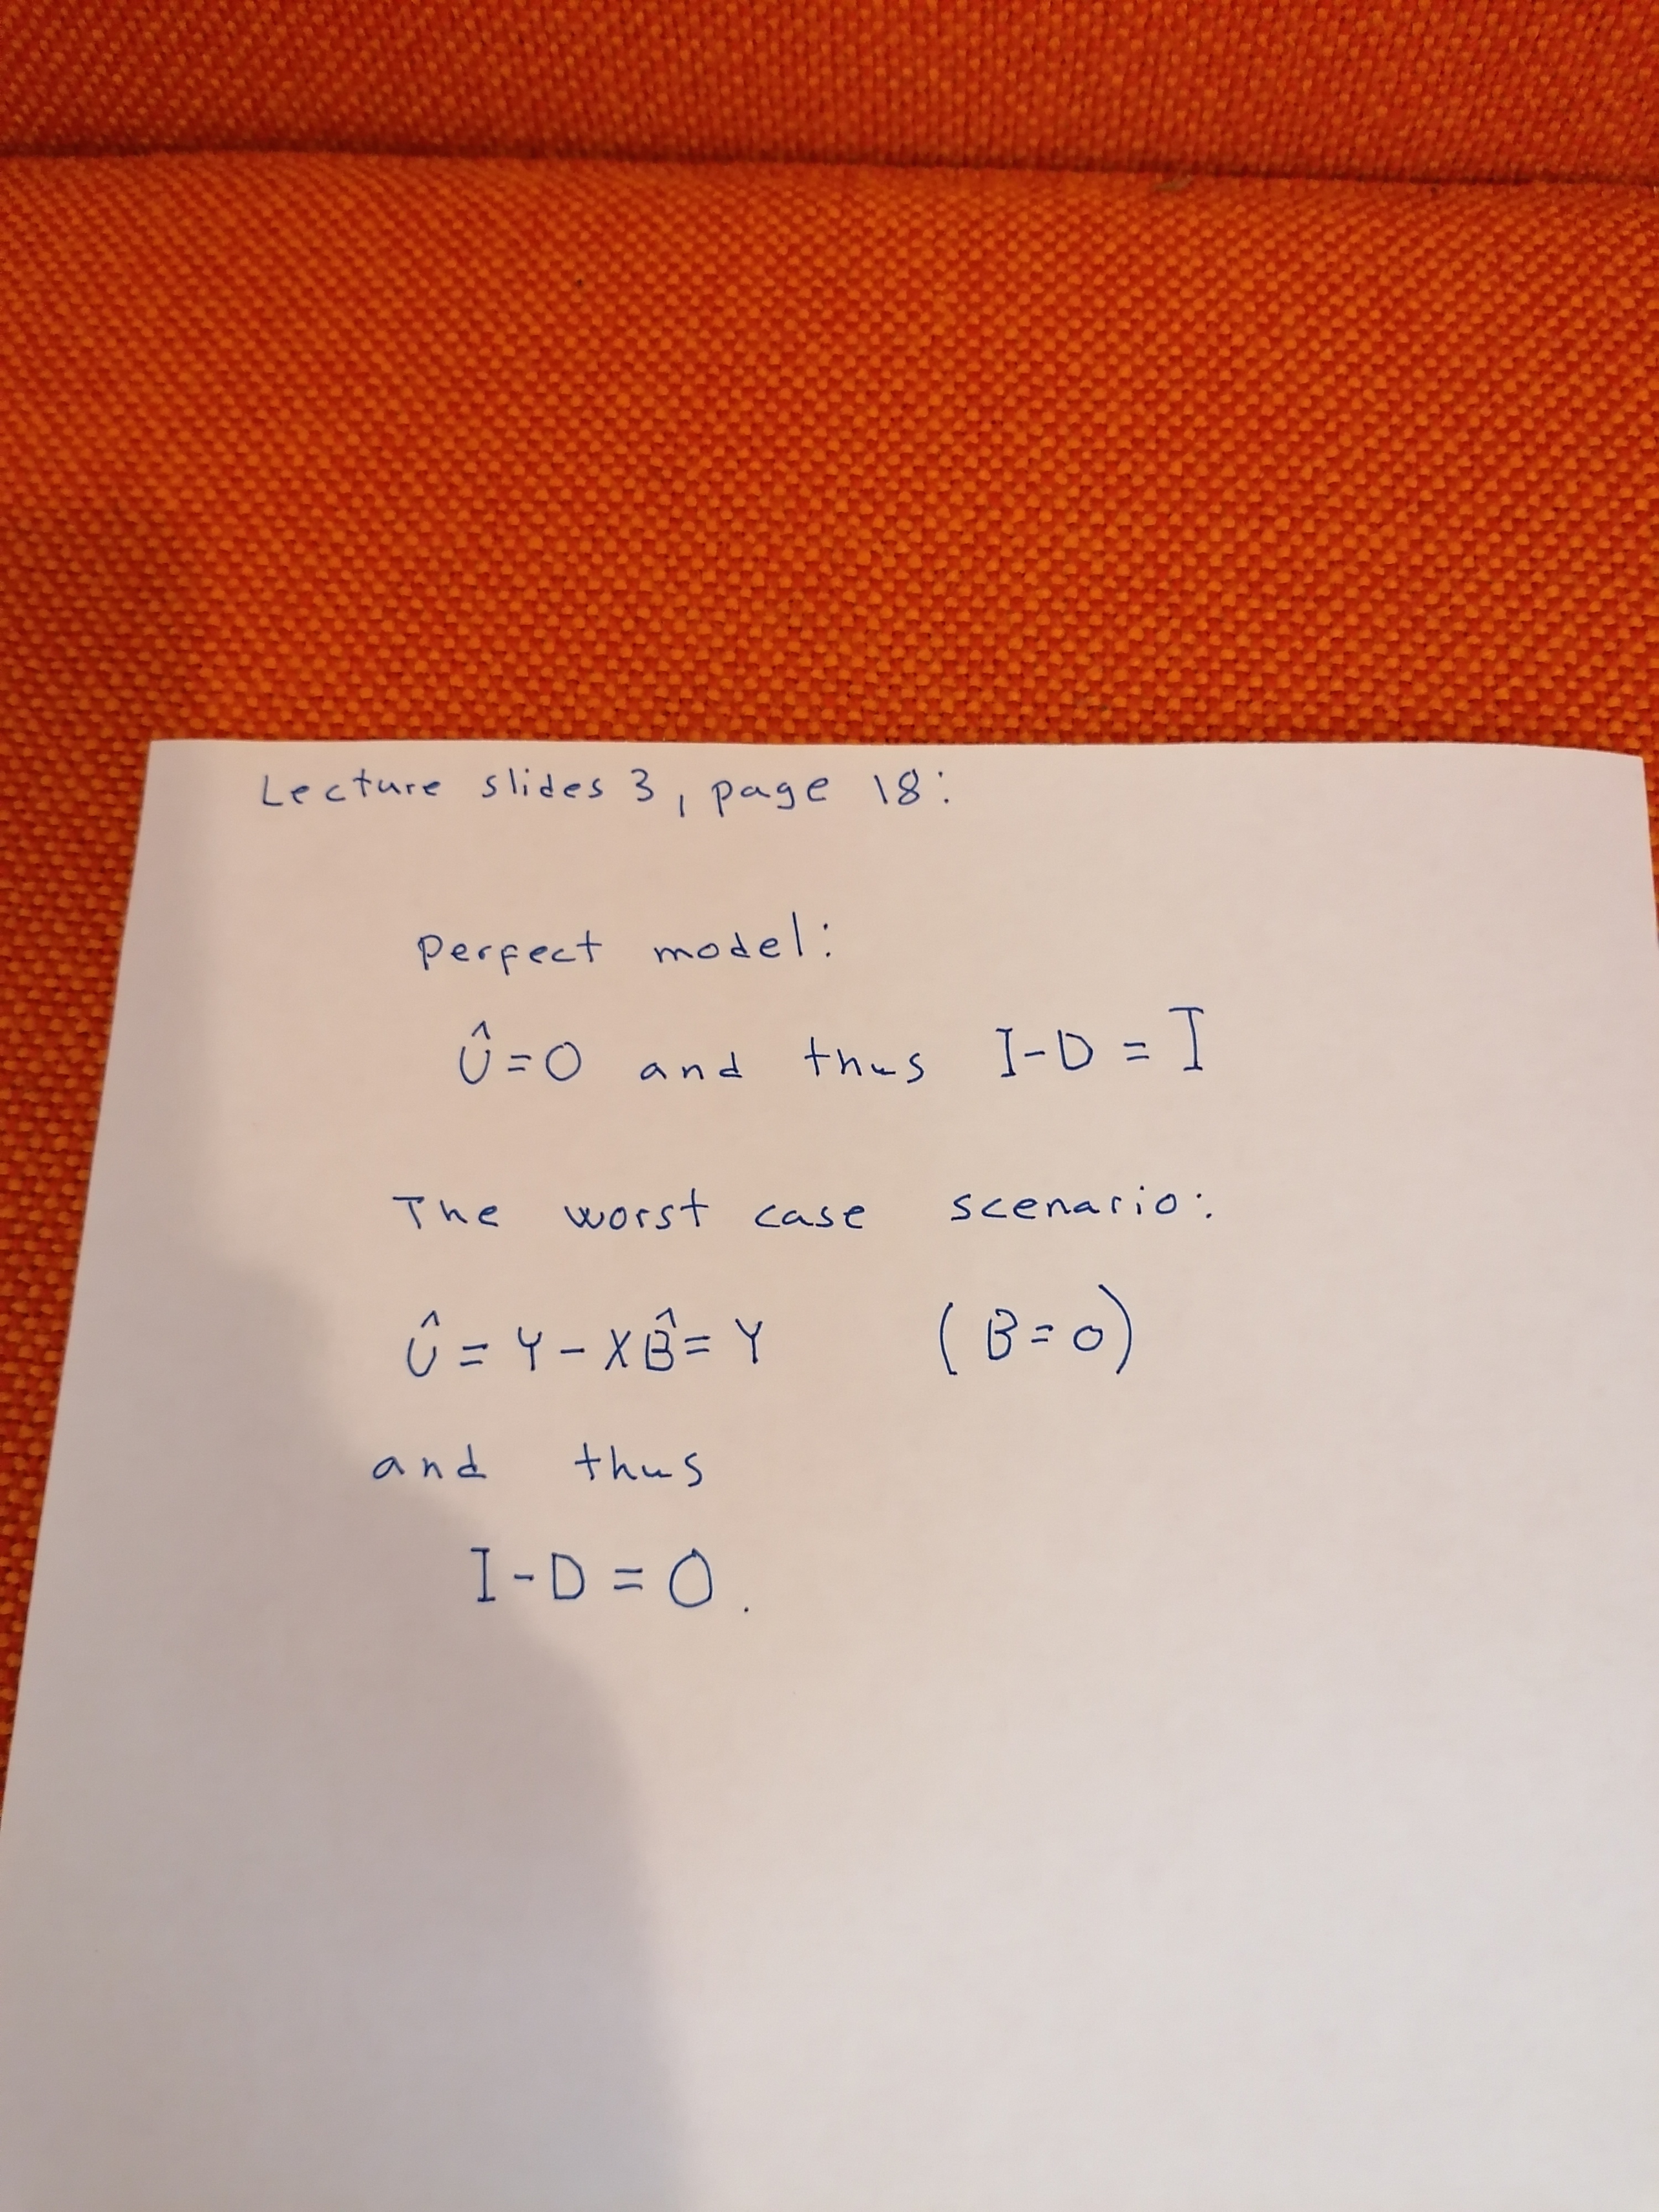 Lecture slides 3, page 18:
Perfect model:
Û=0 and thus I-D=I
The worst case scenario:
Û=Y-XB̂=Y (B=0)
and thus
I-D=0.